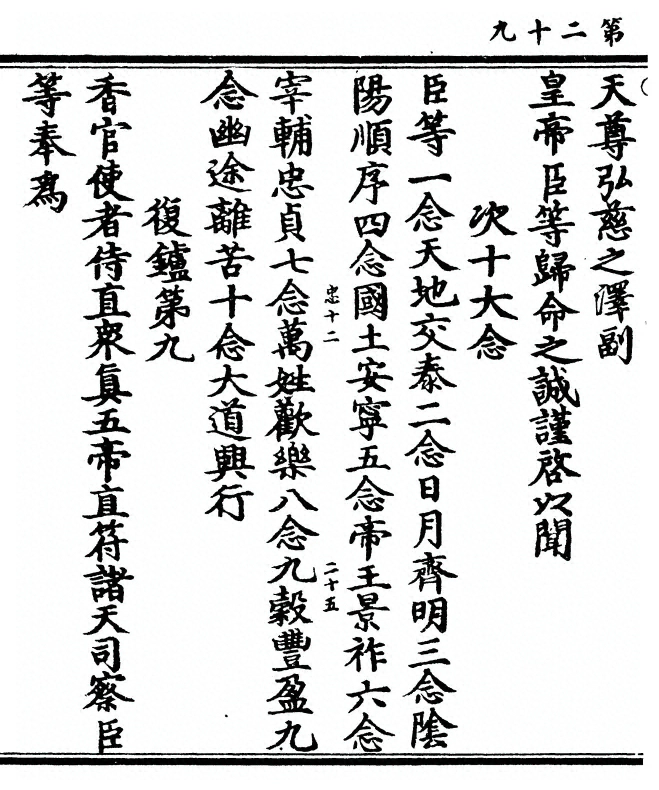 第二十九
天尊弘慈之澤副
皇帝臣等歸命之誠謹啓以聞
次十大念
臣等一念天地交泰二念日月齊明三念陰
陽順序四念國土安寧五念帝王景祚六念
忠十二
二十五
宰輔忠貞七念萬姓歡樂八念九穀豐盈九
念幽途離苦十念大道興行
復鑪第九
香官使者侍直衆眞五帝直符諸天司察臣
等奉爲